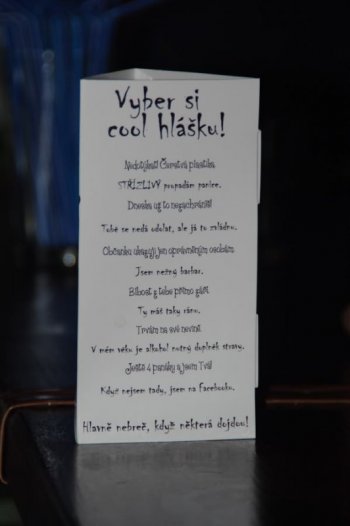 Vyber si
cool hlášku!
Nedotýkat! Čerstvá plastika.
STŘÍZLIVÝ propadám panice.
Dneska už to nezachráníš!
Tobě se nedá odolat, ale já to zvládnu.
Občanku ukazuji jen oprávněným osobám.
Jsem něžný barbar.
Blbost z tebe přímo září.
Ty máš taky ránu.
Trvám na své nevině.
V mém věku je alkohol nutný doplněk stravy.
Ještě 4 panáky a jsem Tvá!
Když nejsem tady, jsem na Facebooku.
Hlavně nebreč, když některá dojdou!